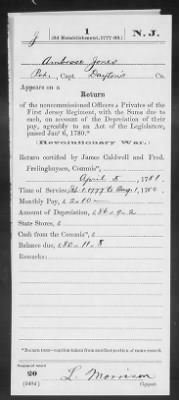 J 1 N. J.
(Old Establishment, 1777-80.)
Ambrose Jones
Pvt., Capt. Dayton's Co.
Appears on a
Return
of the noncommissioned Officers & Privates of the
First Jersey Regiment, with the Sums due to
each, on account of the Depreciation of their
pay, agreeably to an Act of the Legislature,
passed Jan'y 6, 1780.*
(Revolutionary War.)
Return certified by James Caldwell and Fred.
Frelinghuysen, Commis'rs,
April 5, 1781.
Time of Service, Feb. 1, 1777 to Aug 1, 1780
Monthly Pay, £ 2 10
Amount of Depreciation, £ 84 9 2
State Stores, £
Cash from the Commis'rs, £
Balance due, £ 80 11 8
Remarks:
20
(548d)
L. Morrison
Copyist.